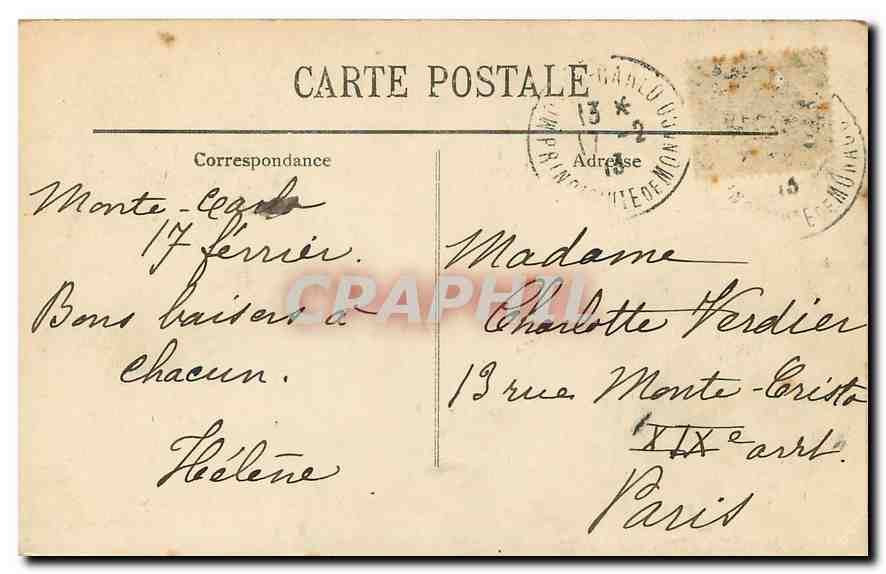 CARTE POSTALE
Correspondance
Adresse
13 *
17 -2
13
CARLO
PRINCIPAUTE DE MONACO
13
Monte-Carlo
17 février.
Bons baisers à
chacun.
Hélène
Madame
Charlotte Verdier
13 rue Monte-Cristo
XIXe arrt.
Paris
CRAPHIL